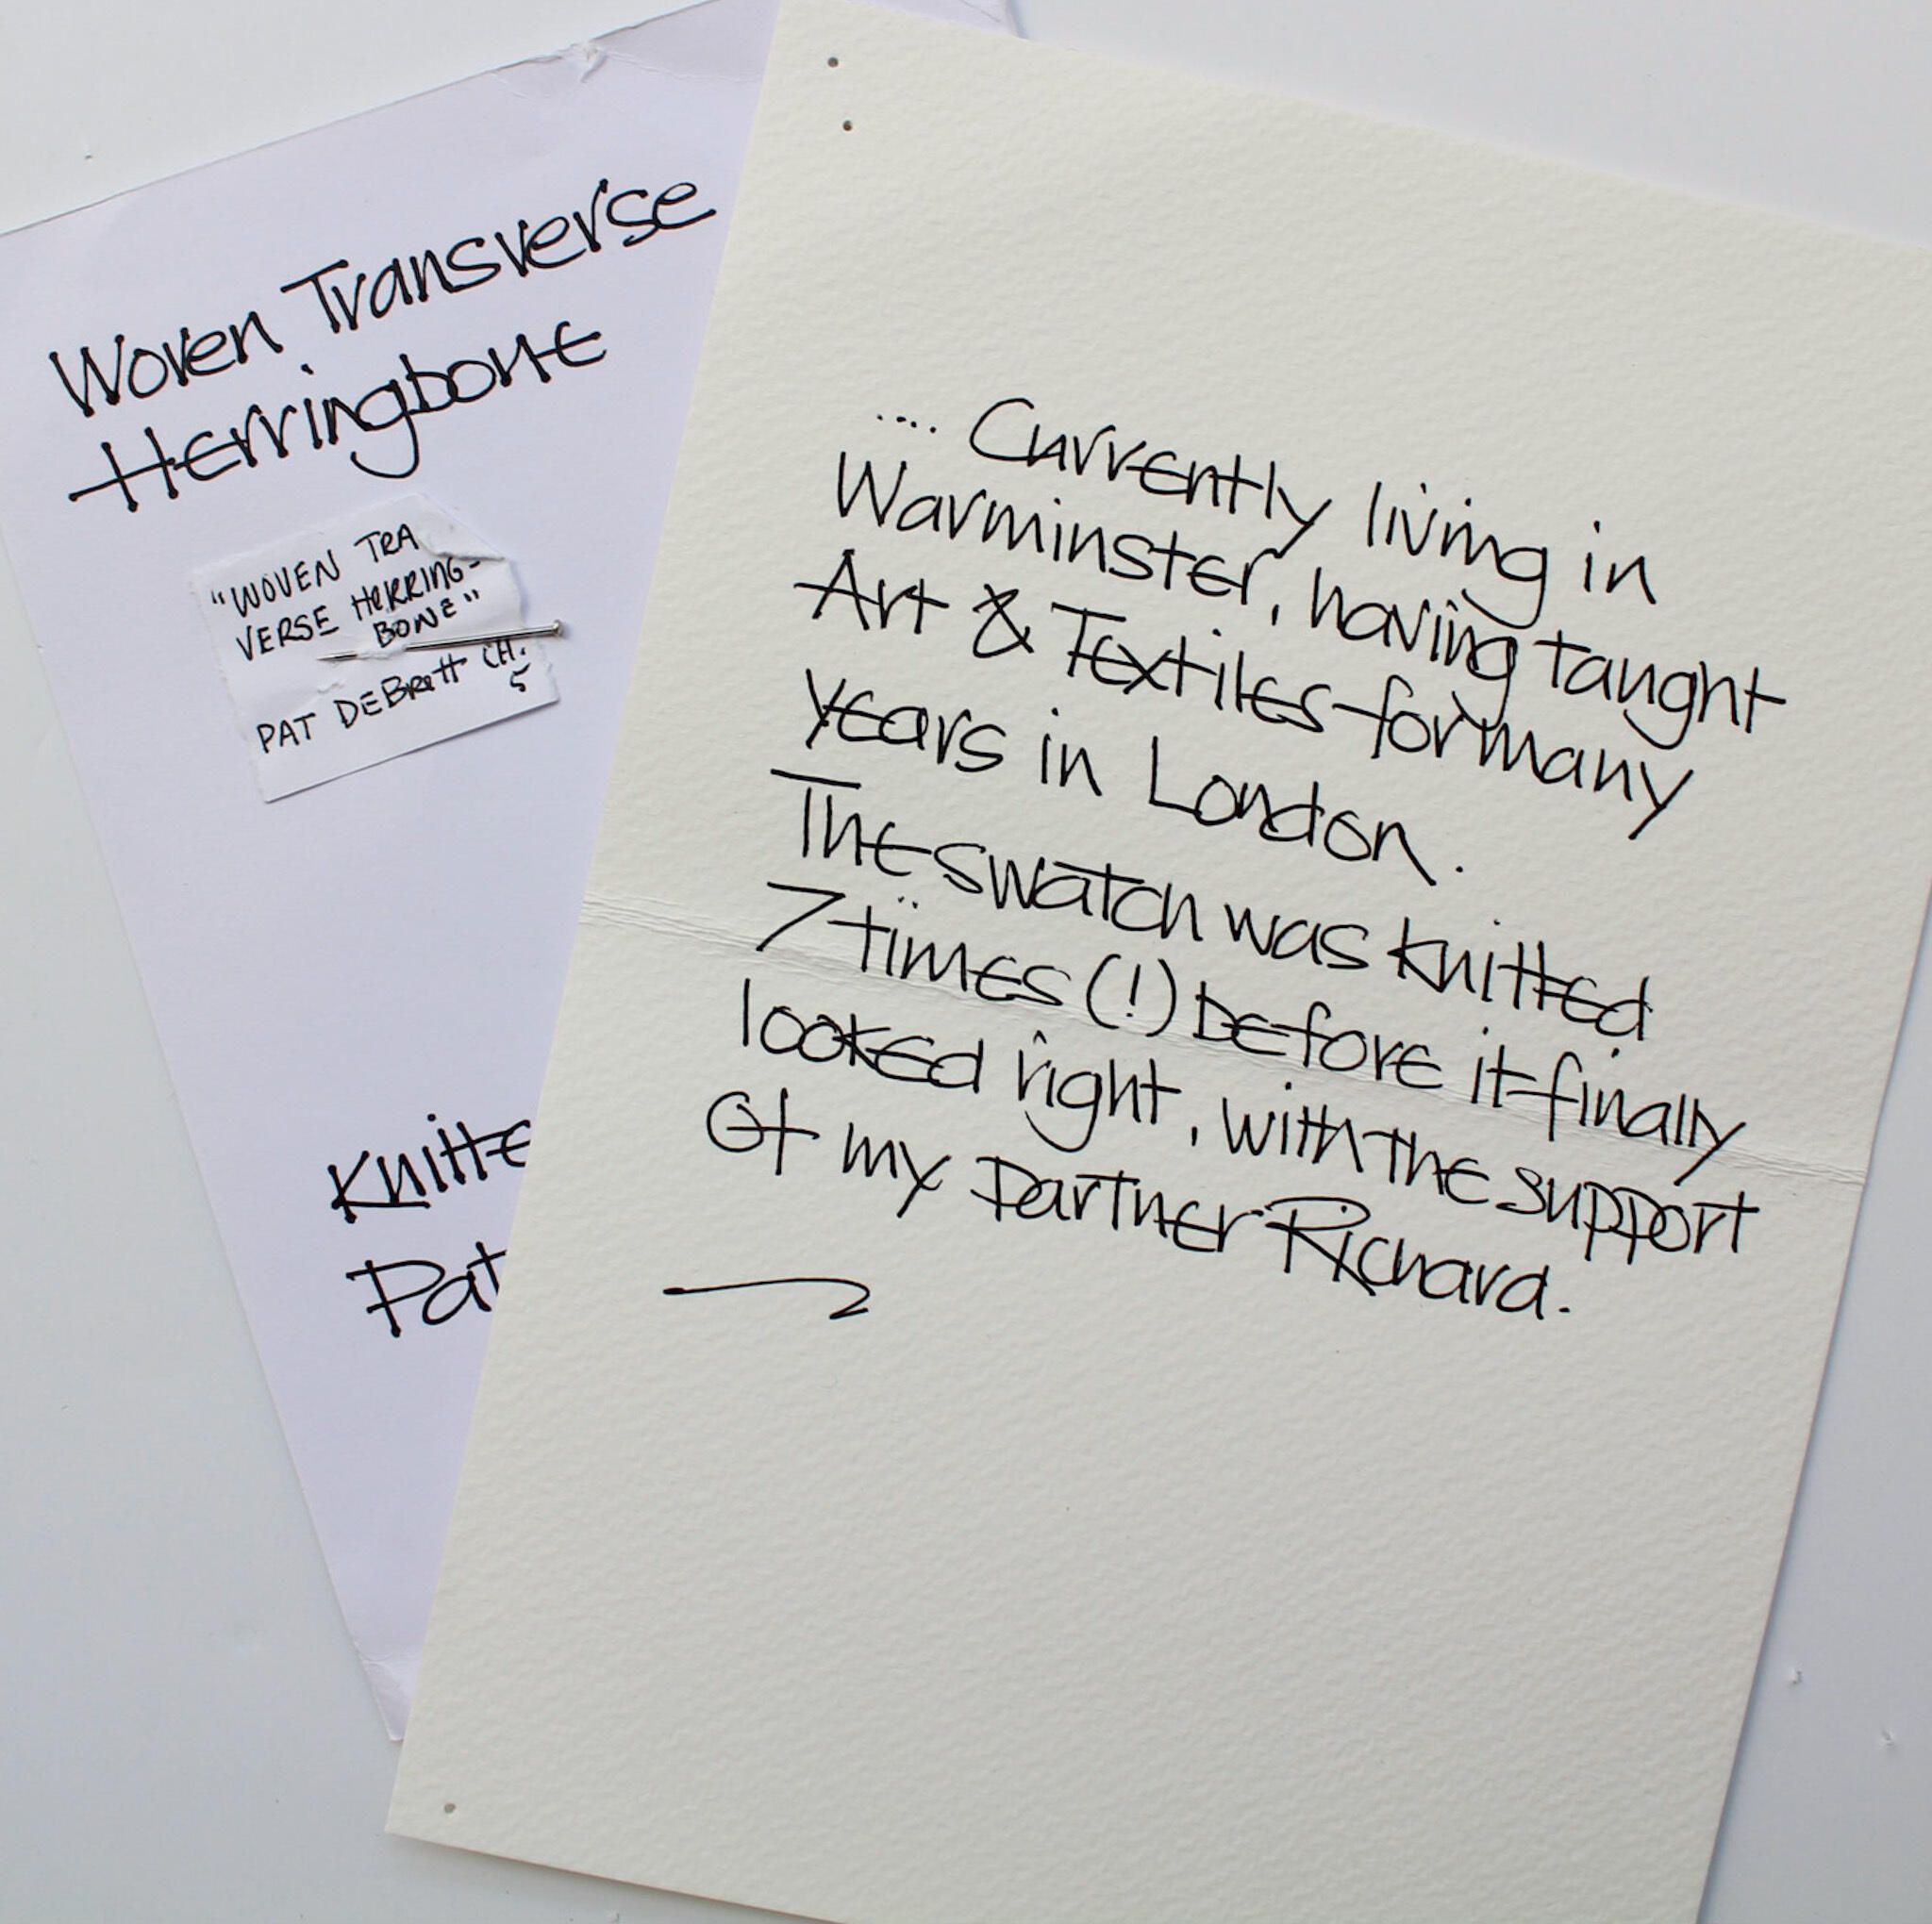 Woven Transverse
Herringbone
"WOVEN TRA
VERSE HERRING-
BONE"
PAT DEBRETT CH.
5
Knitte
Pat
.... Currently living in
Warminster, having taught
Art & Textiles for many
years in London.
The swatch was knitted
7 times (!) before it finally
looked right, with the support
of my partner Richard.